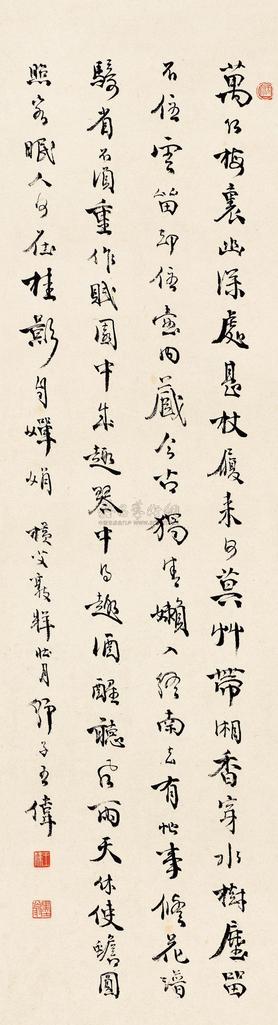 萬紅梅裏幽深處甚杖屨來何莫艸帶湘香穿水樹塵留
不住雲留卻住壺內藏今古獨清懶入終南去有忙事修花譜
騎省不須重作賦園中成趣琴中得趣酒醒聽風雨天休使蟾圓
照客眠人何在桂影自嬋娟 月 子王偉